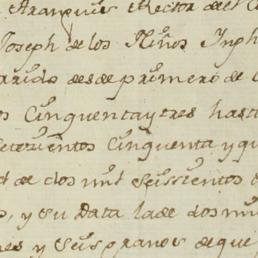 Aranguis Rector de el
Joseph de los Niños
desde primero de
Cinquenta y tres hast
setezientos Cinquenta y qu
d de dos mil Seiscientos
y su Data la de dos mil
es y Seis granos de que